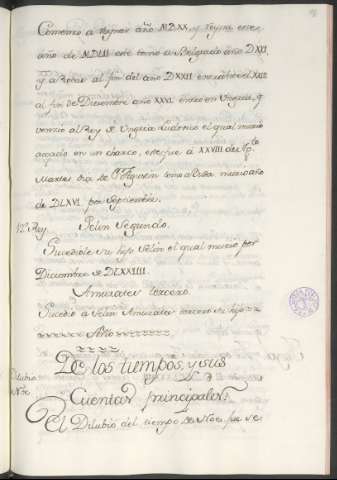 Comenzo a Reynar año MDXX, y Reyno este
año de MDLII este tomo a Belgrado año DXXI,
y a Rodas al fin del año DXXII
al fin de Diciembre año XXVI entro en Ungria, y
vencio al Rey de Ungria Ludovico el qual murio
aogado en un charco, este fue á XXVIII de
Martes dia de Sn Agustin murio año
de DLXVI por Septiembre.
12º Rey. Selin Segundo.
Sucediole su hijo Selin el qual murio por
Diciembre de DLXXIIII.
Amurates tercero.
Sucedio a Selin Amurates tercero su hijo
Año
De los tiempos, y sus
Cuentas principales.
Dilubio
Noe
El Dilubio del tiempo de Noe, fue de